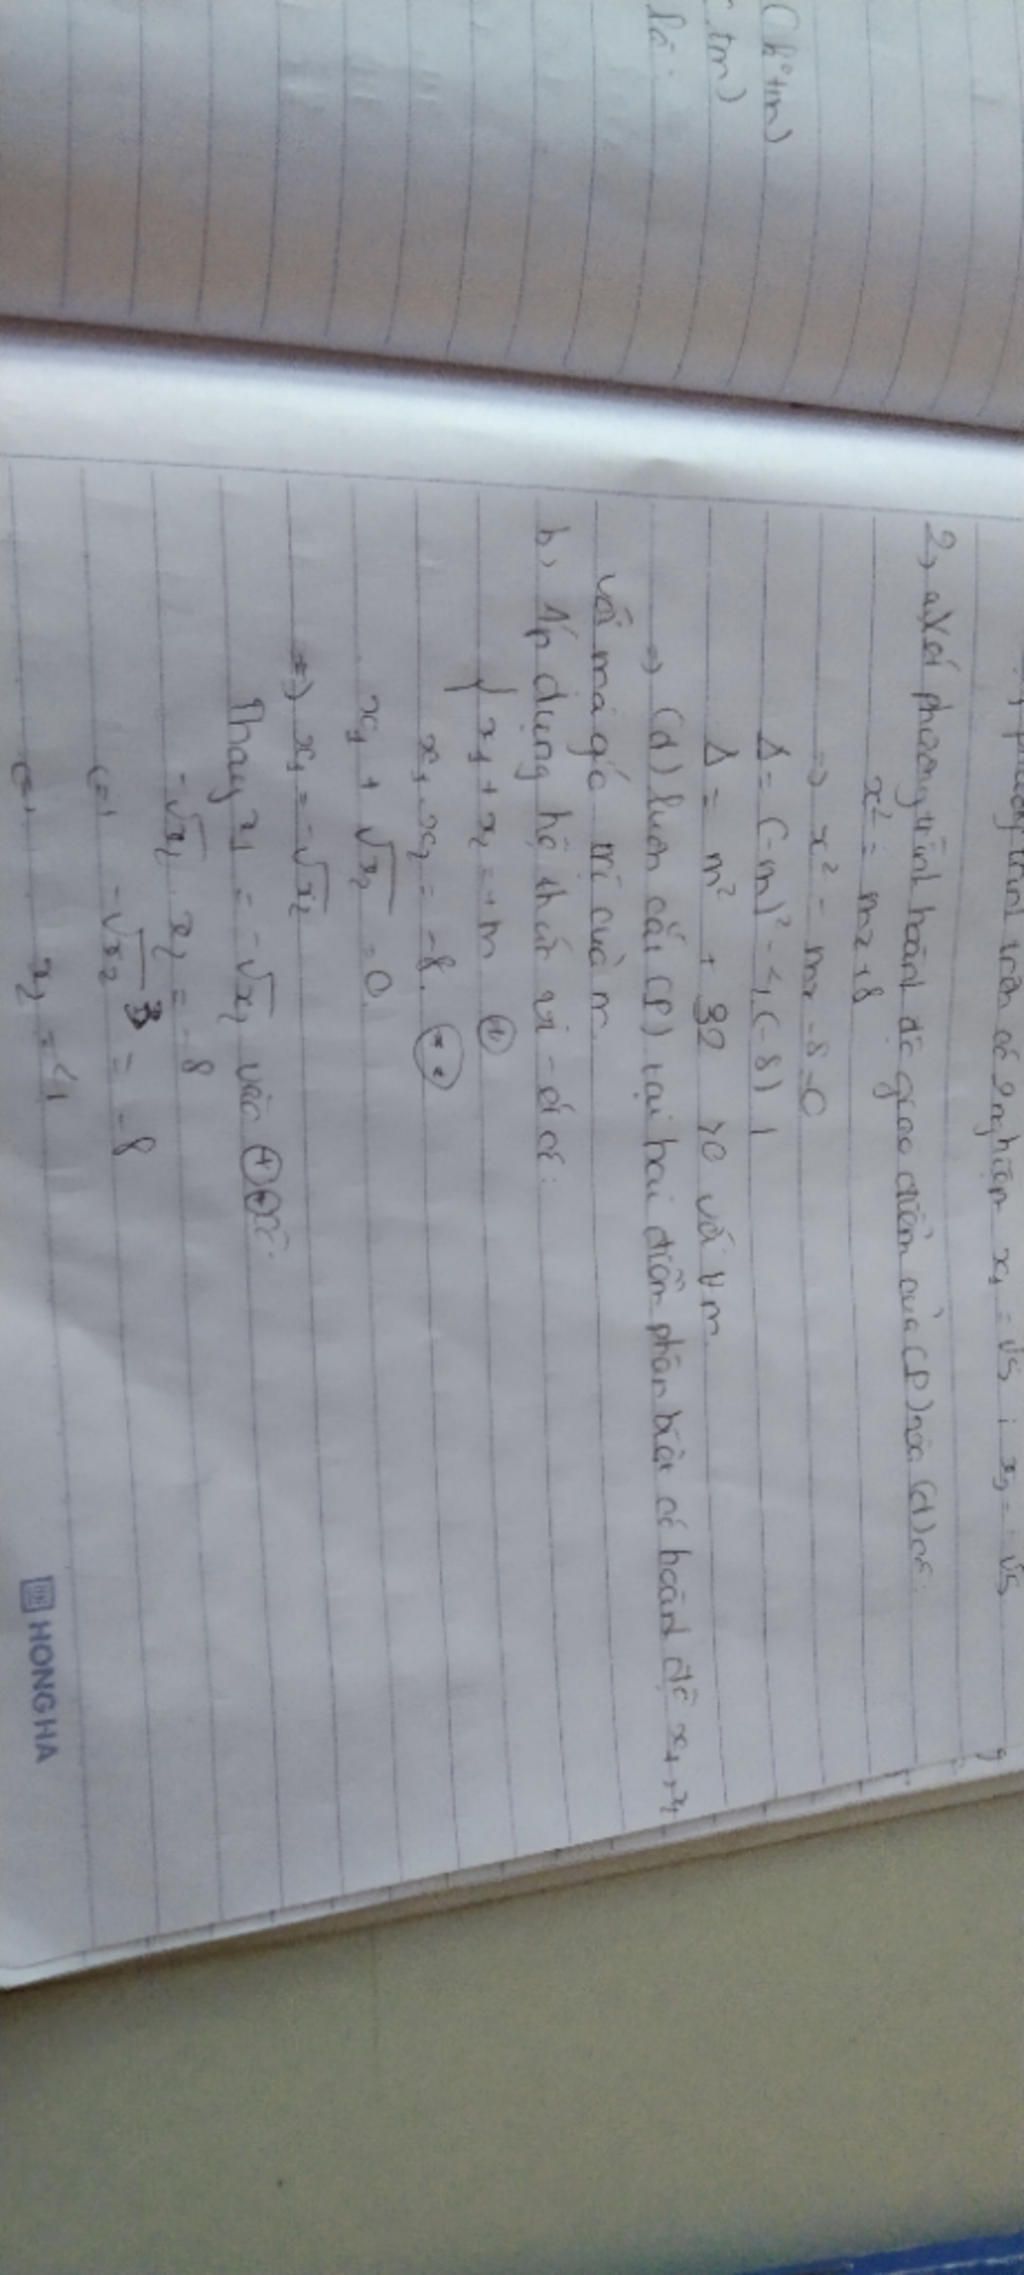 (k°tm)
(tm)
là:
phương trình trên có 2 nghiệm x₁ = √5 ; x₂ = -√5
2, a, Xét phương trình hoành độ giao điểm của (P) và (d) có:
x² = mx + 8
=> x² - mx - 8 = 0
Δ = (-m)² - 4.(-8).1
Δ = m² + 32 > 0 với ∀ m
=> (d) luôn cắt (P) tại hai điểm phân biệt có hoành độ x₁, x₂
với mọi giá trị của m
b, Áp dụng hệ thức vi-ét có:
{ x₁ + x₂ = m (*)
x₁.x₂ = -8 (**)
x₁ + √x₂ = 0
=> x₁ = -√x₂
Thay x₁ = -√x₂ vào có:
-√x₂ . x₂ = -8
<=> -√x₂³ = -8
<=> x₂ = 4
HONG HA